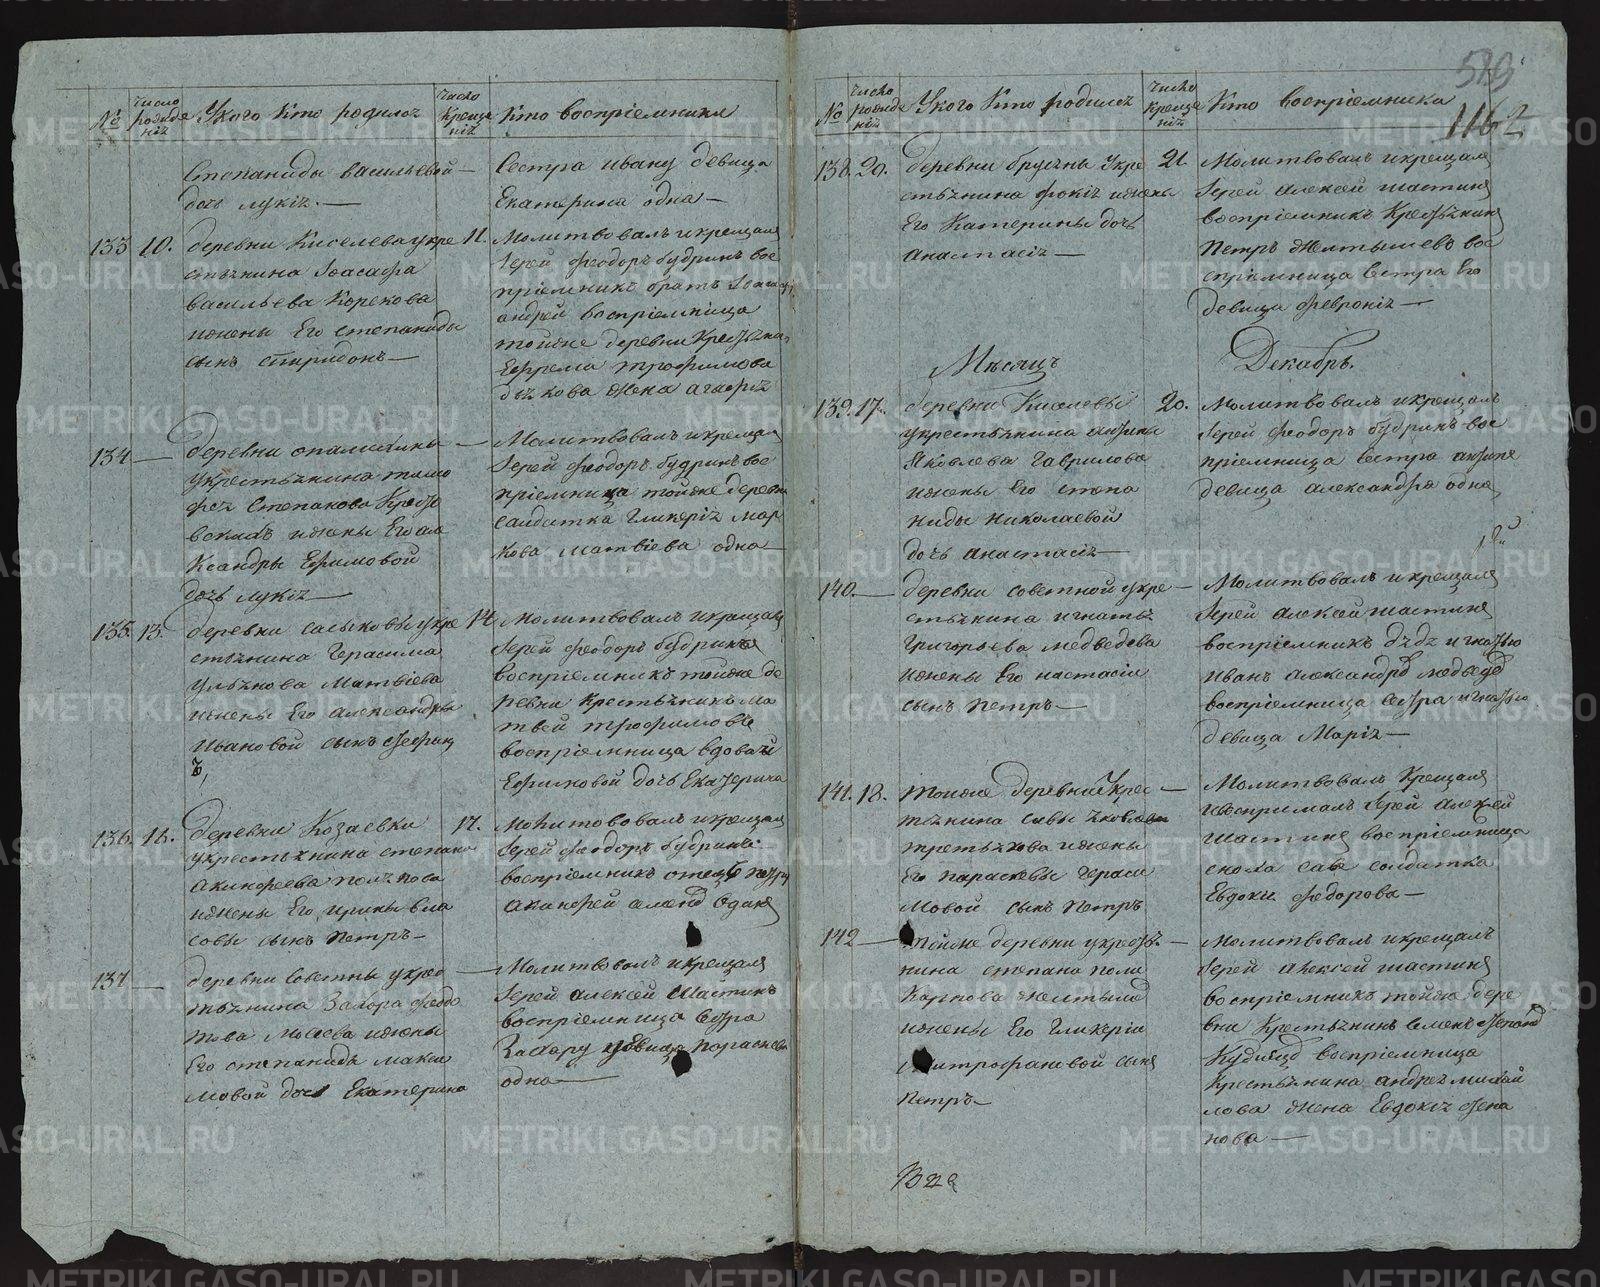 № Число рожде нія Укого кто родился Число креще нія кто воспріемники
Степаниды васильевой —
дочь лукія. —
Сестра ивану девица
Екатерина одна —
133 10. деревни Киселева укре 11.
стьянина Іоасафа
васильева Корекова
ижены Его степаниды
сынъ спиридонъ —
Молитвовалъ икрещалъ
Іерей феодоръ будринъ вос
пріемникъ братъ
андрей воспріемница
тойже деревни
Ефрема трофимова
дьячкова жена агафія
134 — деревни —
укрестьянина тимо
фея Степанова
ижены Его але
ксандры Ефимовой
дочь лукія —
Молитвовалъ икрещалъ
Іерей феодоръ будринъ вос
пріемница тойже деревни
салдатка гликерія мар
кова матвіева одна
135. 13. деревни сасыковы укре 14.
стьянина Герасима
ульянова Матвіева
ижены Его александры
ивановой сынъ
Молитвовалъ икрещалъ
Іерей феодоръ будринъ
воспріемникъ тойже де
ревни крестьянинъ ма
твей трофимовъ
воспріемница вдовы
Ефимовой дочь Екатерина
136. 16. деревни Козаевки 17.
укрестьянина степана
акинфеева
ижены Его ирины вла
совы сынъ Петръ —
Молитвовалъ икрещалъ
Іерей феодоръ будринъ
воспріемникъ отецъ
акинфей
137 — деревни Советны укрес —
тьянина Захара федо
това ижены
Его степаниды макси
мовой дочь Екатерина
Молитвовалъ икрещалъ
Іерей алексей Шастинъ
воспріемница сестра
Захару девица параскева
одна —
519
116
№ Число рожде нія Укого кто родился Число креще нія Кто воспріемники
138. 20. деревни брусяны Укре 21
стьянина фокія ижены
Его Катерины дочь
анастасія —
Молитвовалъ икрещалъ
Іерей алексей шастинъ
воспріемникъ Крестьянинъ
Петръ желтышевъ вос
пріемница сестра Его
девица февронія —
Мѣсяцъ Декабрь.
139. 17. деревни Киселевы 20.
укрестьянина
Яковлева Гаврилова
ижены Его степа
ниды николаевой
дочь анастасія —
Молитвовалъ икрещалъ
Іерей феодоръ будринъ вос
пріемница сестра
девица александра одна
140. — деревни советной укре —
стьянина игнатья
Григорьева медведева
ижены Его настасіи
сынъ Петръ —
Молитвовалъ икрещалъ
Іерей алексей шастинъ
воспріемникъ дядя игнатью
иванъ
воспріемница сестра игнатью
девица Марія —
141. 18. тойже деревни Укрес —
тьянина савы яковлева
третьякова ижены
Его параскевы гераси
мовой сынъ Петръ
Молитвовалъ Крещалъ
ивоспримали Іерей алексей
Шастинъ воспріемница
сноха саве солдатка
Евдокія федорова —
142 — тойже деревни укресть —
нина степана поли
карпова
ижены Его гликеріи
митрофановой сынъ
Петръ —
Молитвовалъ икрещалъ
Іерей алексей шастинъ
воспріемникъ тойже дере
вни Крестьянинъ Семенъ
воспріемница
Крестьянина андрея михай
лова жена Евдокія степа
нова —